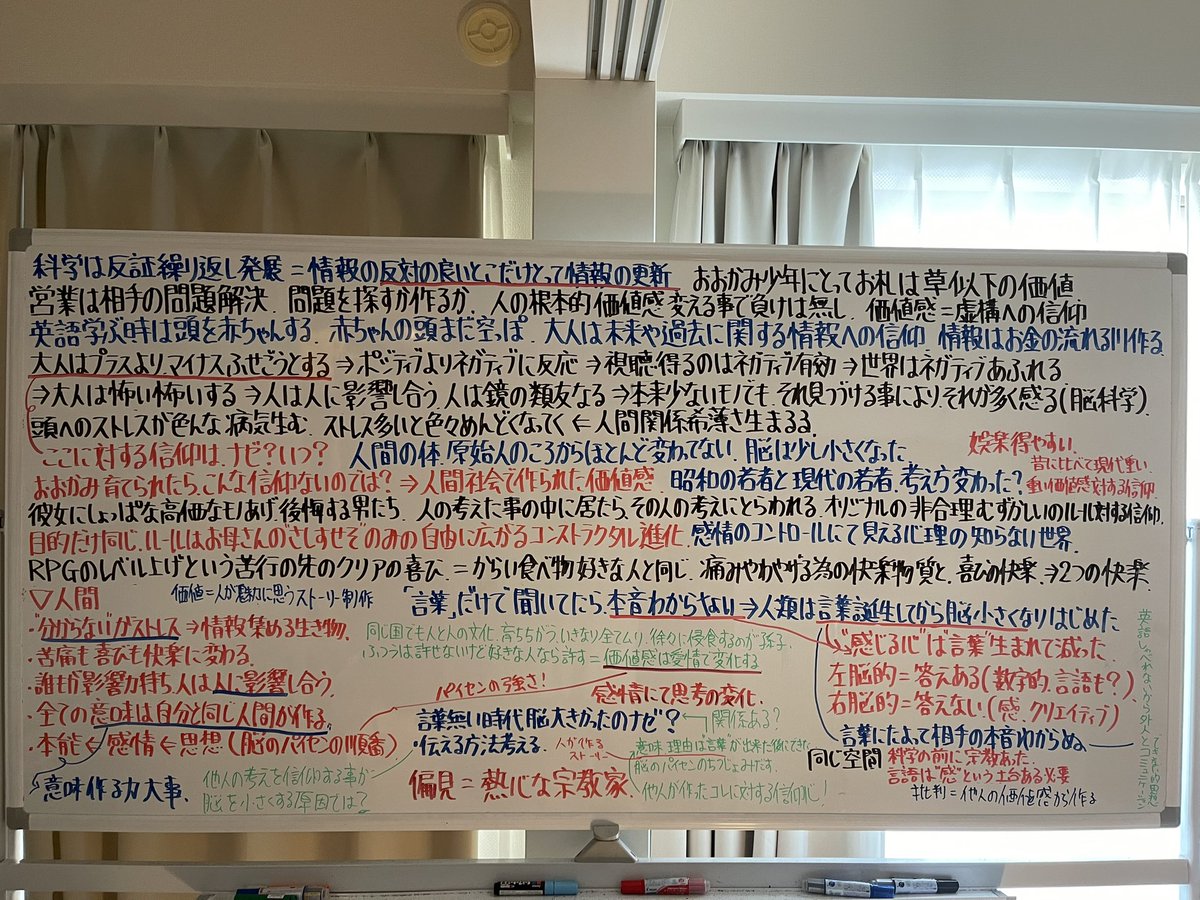 科学は反証繰り返し発展=情報の反対の良いとこだけとって情報の更新 おおかみ少年にとってお札は草似以下の価値
営業は相手の問題解決. 問題を探すか作るか. 人の根本的価値感変える事で負けは無し. 価値感=虚構への信仰
英語学ぶ時は頭を赤ちゃんする. 赤ちゃんの頭まだ空っぱ. 大人は未来や過去に関する情報への信仰. 情報はお金の流れる川作る
大人はプラスよりマイナスふせごうとする⇒ポジティブよりネガティブに反応⇒視聴得るのはネガティブ有効⇒世界はネガティブあふれる
⇒大人は怖い怖いする⇒人は人に影響し合う.人は鏡の類友なる⇒本来少ないモノでも.それ見つづける事により.それが多く感る(脳科学).
頭へのストレスが色んな病気生む. ストレス多いと色々めんどくなってく⇐人間関係希薄さ生まるる
ここに対する信仰は.ナゼ?いつ? 人間の体.原始人のころからほとんど変わてない.脳は少し小さくなった.
娯楽得やすい.
昔に比べて現代重い.
おおかみ育てられたら.こんな信仰ないのでは?⇒人間社会で作られた価値感 昭和の若者と現代の若者.考え方変わった?
重い価値感対する信仰.
彼女にしょっぱな高価なモノあげ.後悔する男たち. 人の考えた事の中に居たら.その人の考えにとらわれる.オリジナルの非合理むずかしいのルール対する信仰.
目的だけ同じ.ルールはお母さんのさしすせぞのみの自由に広がるコンストラクタル進化. 感情のコントロールにて見える心理の知らない世界.
RPGのレベル上げという苦行の先のクリアの喜び.=からい食べ物好きな人と同じ. 痛みやわやげる為の快楽物質と.喜びの快楽.⇒2つの快楽
▽人間 価値=人が魅力に思うストーリー制作 「言葉」だけで聞いてたら.本音わからない⇒人類は言葉誕生してから脳小さくなりはじめた
・"分からない"がストレス⇒情報集める生き物.
・苦痛も喜びも快楽に変わる.
・誰もが影響力持ち人は人に影響し合う.
・全ての意味は自分と同じ人間が作る.
・本能⇐感情⇐思想(脳のパイセンの順番)
意味作る力大事.
同じ国でも人と人の文化.育ちちがう.いきなり全てムリ.徐々に侵食するのが孫子.
ふつうは許せないけど好きな人なら許す=価値感は愛情で変化する
パイセンの強さ! 感情にて思考の変化.
言葉無い時代脳大きかったのナゼ? 関係ある?
・伝える方法考える. 人が作るストーリー
意味.理由は"言葉"が出来た後にできた
脳のパイセンのちつじょみだす
他人が作ったコレに対する信仰心!
他人の考えを信仰する事が
脳を小さくする原因では?
偏見=熱心な宗教家.
"感じる心"は"言葉"生まれて減った.
左脳的=答えある(数字的.言語も?)
右脳的=答えない(感.クリエイティブ)
言葉によって相手の本音わからぬ
同じ空間 科学の前に宗教あった.
言語は"感"という土台ある必要
批判=他人の価値感から作る
英語しゃべれないから外人とコミュニケーション